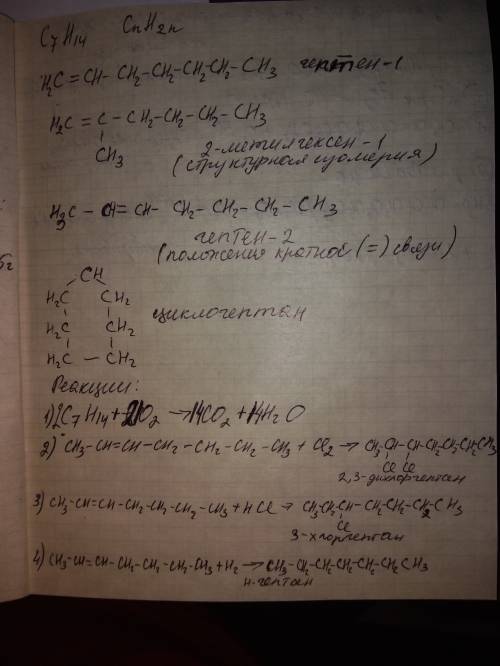 C7H14 CnH2n
H2C = CH - CH2 - CH2 - CH2 - CH2 - CH3 гептен-1
H2C = C - CH2 - CH2 - CH2 - CH3
CH3
2-метилгексен-1
(структурная изомерия)
H3C - CH = CH - CH2 - CH2 - CH2 - CH3
гептен-2
(положения кратной (=) связи)
CH
H2C CH2
H2C CH2
H2C - CH2
циклогептан
Реакции:
1) 2C7H14 + 21O2 → 14CO2 + 14H2O
2) CH3-CH=CH-CH2-CH2-CH2-CH3 + Cl2 → CH3-CH-CH-CH2-CH2-CH2-CH3
Cl Cl
2,3-дихлоргептан
3) CH3-CH=CH-CH2-CH2-CH2-CH3 + HCl → CH3-CH2-CH-CH2-CH2-CH2-CH3
Cl
3-хлоргептан
4) CH3-CH=CH-CH2-CH2-CH2-CH3 + H2 → CH3-CH2-CH2-CH2-CH2-CH2-CH3
н-гептан